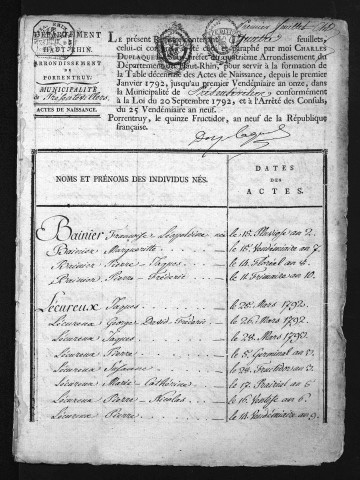 DÉPARTEMENT
DU
HAUT-RHIN.
ARRONDISSEMENT
DE
PORRENTRUY.
MUNICIPALITÉ
ACTES DE NAISSANCE.
Premier feuillet
Le présent Registre contenant feuillets,
celui-ci compris, a été coté et paraphé par moi CHARLES
DUPLAQUET, sous-préfet du quatrième Arrondissement du
Département du Haut-Rhin, pour servir à la formation de
la Table décennale des Actes de Naissance, depuis le premier
Janvier 1792, jusqu'au premier Vendémiaire an onze, dans
la Municipalité de conformément
à la Loi du 20 Septembre 1792, et à l'Arrêté des Consuls,
du 25 Vendémiaire an neuf.
Porrentruy, le quinze Fructidor, an neuf de la République
française.
NOMS ET PRÉNOMS DES INDIVIDUS NÉS.
DATES
DES
ACTES.
Bainier Françoise Léopoldine née le 18 Pluviose an 2.
Bainier Marguerite le 15 Vendémiaire an 7.
Bainier Pierre Jaques le 14 Floréal an 4.
Bainier Pierre Fréderic le 11 Frimaire an 10.
Lécureux Jaques le 28 Mars 1792.
Lécureux George David Fréderic le 26 Mars 1792.
Lécureux Jaques le 28 Mars 1792.
Lécureux Pierre le 5 Germinal an 3.
Lécureux Susanne le 29 Fructidor an 3.
Lécureux Marie Cathérine le 17 Prairial an 6
Lécureux Pierre-Nicolas le 16 Ventose an 6
Lécureux Pierre le 14 Vendémiaire an 9.